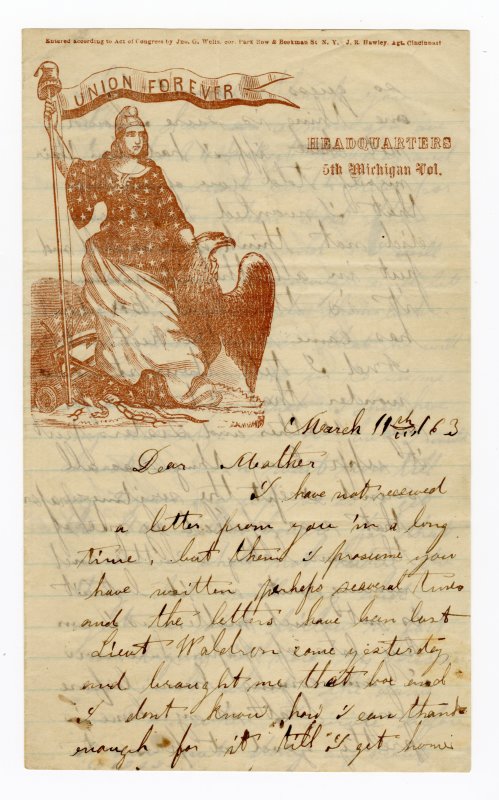 Entered according to Act of Congress by Jno. G. Wells, cor. Park Row & Beekman St N. Y. J. R. Hawley, Agt. Cincinnati
UNION FOREVER
HEADQUARTERS
5th Michigan Vol.
March 11th /63
Dear Mother
I have not received
a letter from you in a long
time, but then I prosume you
have written perhaps seaveral times
and the letters have been lost
Lieut Waldron came yesterday
and braught me that box and
I dont know how I can thank
enaugh for it till I get home